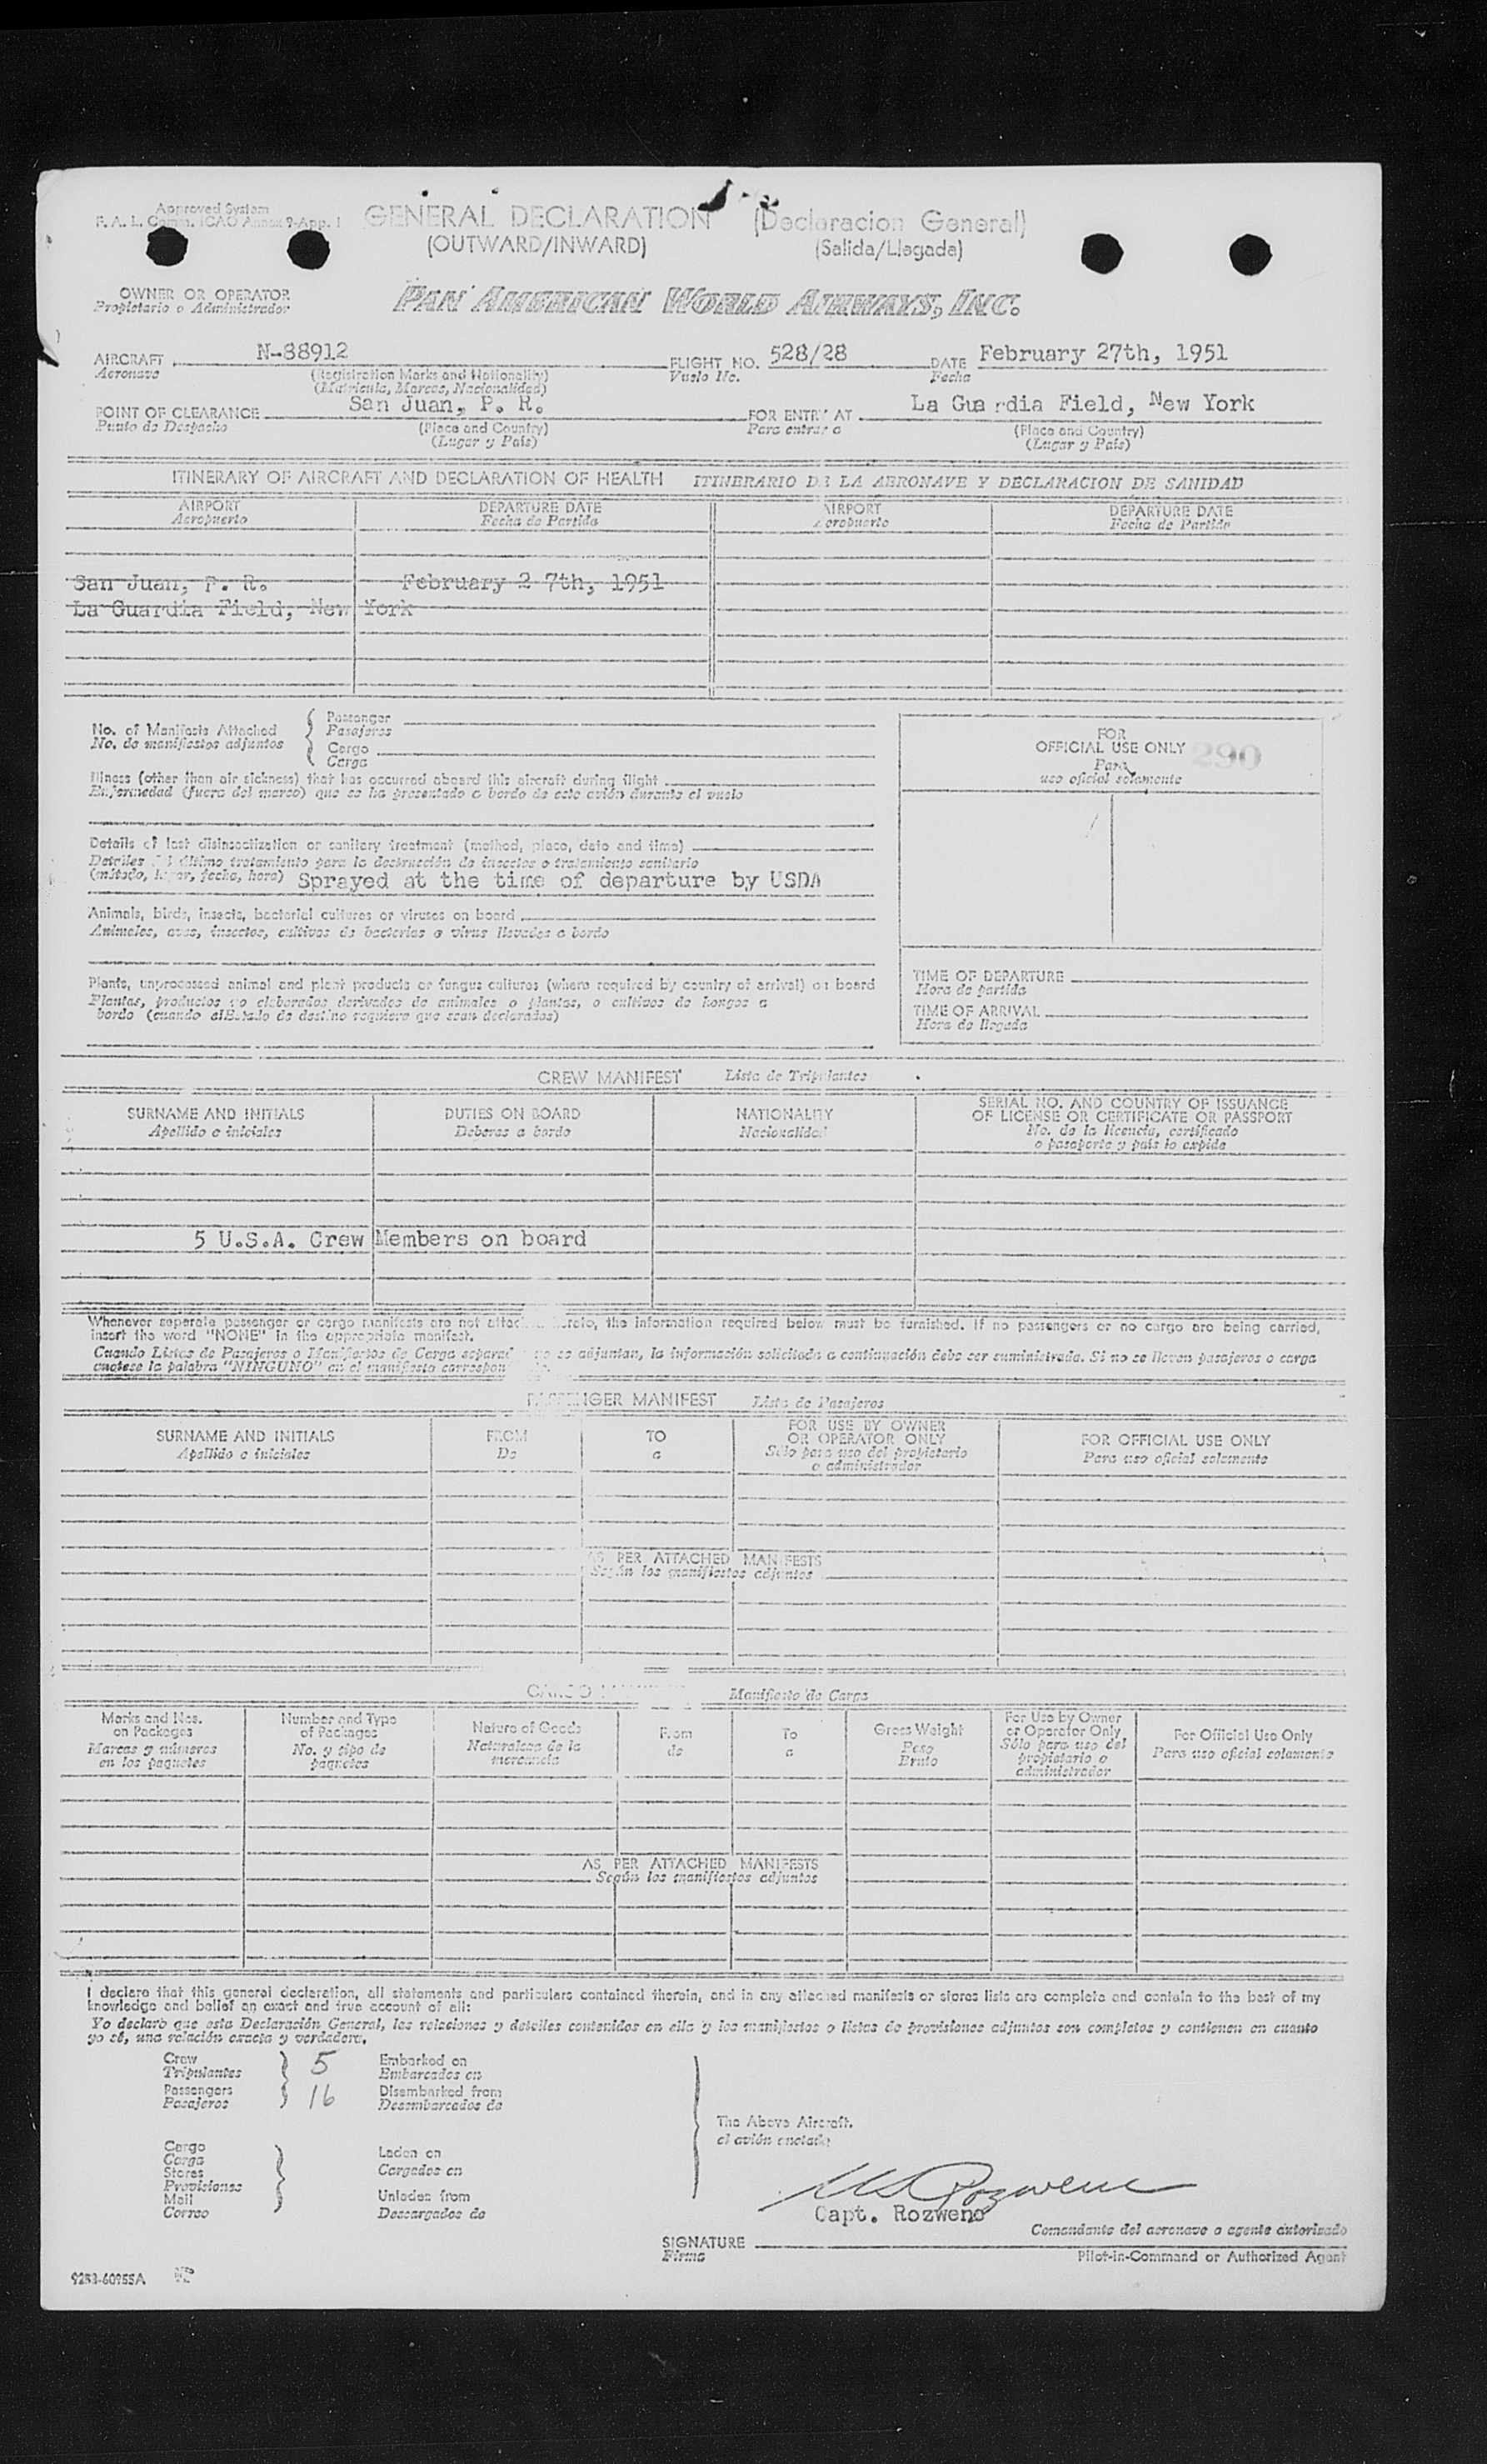 Approved System
F. A. L. Comm. ICAO Annex 9-App. 1
GENERAL DECLARATION (Declaracion General)
(OUTWARD/INWARD) (Salida/Llegada)
OWNER OR OPERATOR
Propietario o Administrador
PAN AMERICAN WORLD AIRWAYS, INC.
AIRCRAFT N-88912 FLIGHT NO. 528/28 DATE February 27th, 1951
Aeronave (Registration Marks and Nationality) Vuelo No. Fecha
(Matricula, Marcas, Nacionalidad)
POINT OF CLEARANCE San Juan, P. R. FOR ENTRY AT La Guardia Field, New York
Punto de Despacho (Place and Country) Para entrar a (Place and Country)
(Lugar y País) (Lugar y País)
ITINERARY OF AIRCRAFT AND DECLARATION OF HEALTH ITINERARIO DE LA AERONAVE Y DECLARACION DE SANIDAD
AIRPORT DEPARTURE DATE AIRPORT DEPARTURE DATE
Aeropuerto Fecha de Partida Aeropuerto Fecha de Partida
San Juan, P. R. February 2 7th, 1951
La Guardia Field, New York
No. of Manifests Attached
No. de manifiestos adjuntos
Passenger
Pasajeros
Cargo
Carga
FOR
OFFICIAL USE ONLY 290
Para
uso oficial solamente
Illness (other than air sickness) that has occurred aboard this aircraft during flight
Enfermedad (fuera del mareo) que se ha presentado a bordo de este avión durante el vuelo
Details of last disinsectization or sanitary treatment (method, place, date and time)
Detalles del último tratamiento para la destrucción de insectos o tratamiento sanitario
(método, lugar, fecha, hora) Sprayed at the time of departure by USDA
Animals, birds, insects, bacterial cultures or viruses on board
Animales, aves, insectos, cultivos de bacterias o virus llevados a bordo
Plants, unprocessed animal and plant products or fungus cultures (where required by country of arrival) on board
Plantas, productos no elaborados derivados de animales o plantas, o cultivos de hongos a
bordo (cuando el Estado de destino requiere que sean declarados)
TIME OF DEPARTURE
Hora de partida
TIME OF ARRIVAL
Hora de llegada
CREW MANIFEST Lista de Tripulantes
SURNAME AND INITIALS DUTIES ON BOARD NATIONALITY SERIAL NO. AND COUNTRY OF ISSUANCE
OF LICENSE OR CERTIFICATE OR PASSPORT
Apellido e iniciales Deberes a bordo Nacionalidad No. de la licencia, certificado
o pasaporte y país lo expide
5 U.S.A. Crew Members on board
Whenever separate passenger or cargo manifests are not attac hereto, the information required below must be furnished. If no passengers or no cargo are being carried,
insert the word "NONE" in the appropriate manifest.
Cuando Listas de Pasajeros o Manifiestos de Carga separad no se adjuntan, la información solicitada a continuación debe ser suministrada. Si no se lleven pasajeros o carga
anotese la palabra "NINGUNO" en el manifiesto correspon
PASSENGER MANIFEST Lista de Pasajeros
SURNAME AND INITIALS FROM TO FOR USE BY OWNER
OR OPERATOR ONLY FOR OFFICIAL USE ONLY
Apellido e iniciales De a Sólo para uso del propietario
o administrador Para uso oficial solamente
AS PER ATTACHED MANIFESTS
Según los manifiestos adjuntos
CARGO Manifiesto de Carga
Marks and Nos.
on Packages
Marcas y números
en los paquetes
Number and Type
of Packages
No. y tipo de
paquetes
Nature of Goods
Naturaleza de la
mercancía
From
de
To
a
Gross Weight
Peso
Bruto
For Use by Owner
or Operator Only
Sólo para uso del
propietario o
administrador
For Official Use Only
Para uso oficial solamente
AS PER ATTACHED MANIFESTS
Según los manifiestos adjuntos
I declare that this general declaration, all statements and particulars contained therein, and in any attached manifests or stores lists are complete and contain to the best of my
knowledge and belief an exact and true account of all:
Yo declaro que esta Declaración General, las relaciones y detalles contenidos en ella y los manifiestos o listas de provisiones adjuntos son completos y contienen en cuanto
yo sé, una relación exacta y verdadera.
Crew 5 Embarked on
Tripulantes Embarcados en
Passengers 16 Disembarked from
Pasajeros Desembarcados de
The Above Aircraft.
el avión anotado
Cargo
Carga
Stores
Provisiones
Mail
Correo
Laden on
Cargados en
Unladen from
Descargados de
Capt. Rozwenc
Comandante del aeronave o agente autorizado
SIGNATURE
Firma
Pilot-in-Command or Authorized Agent
9283-60955A